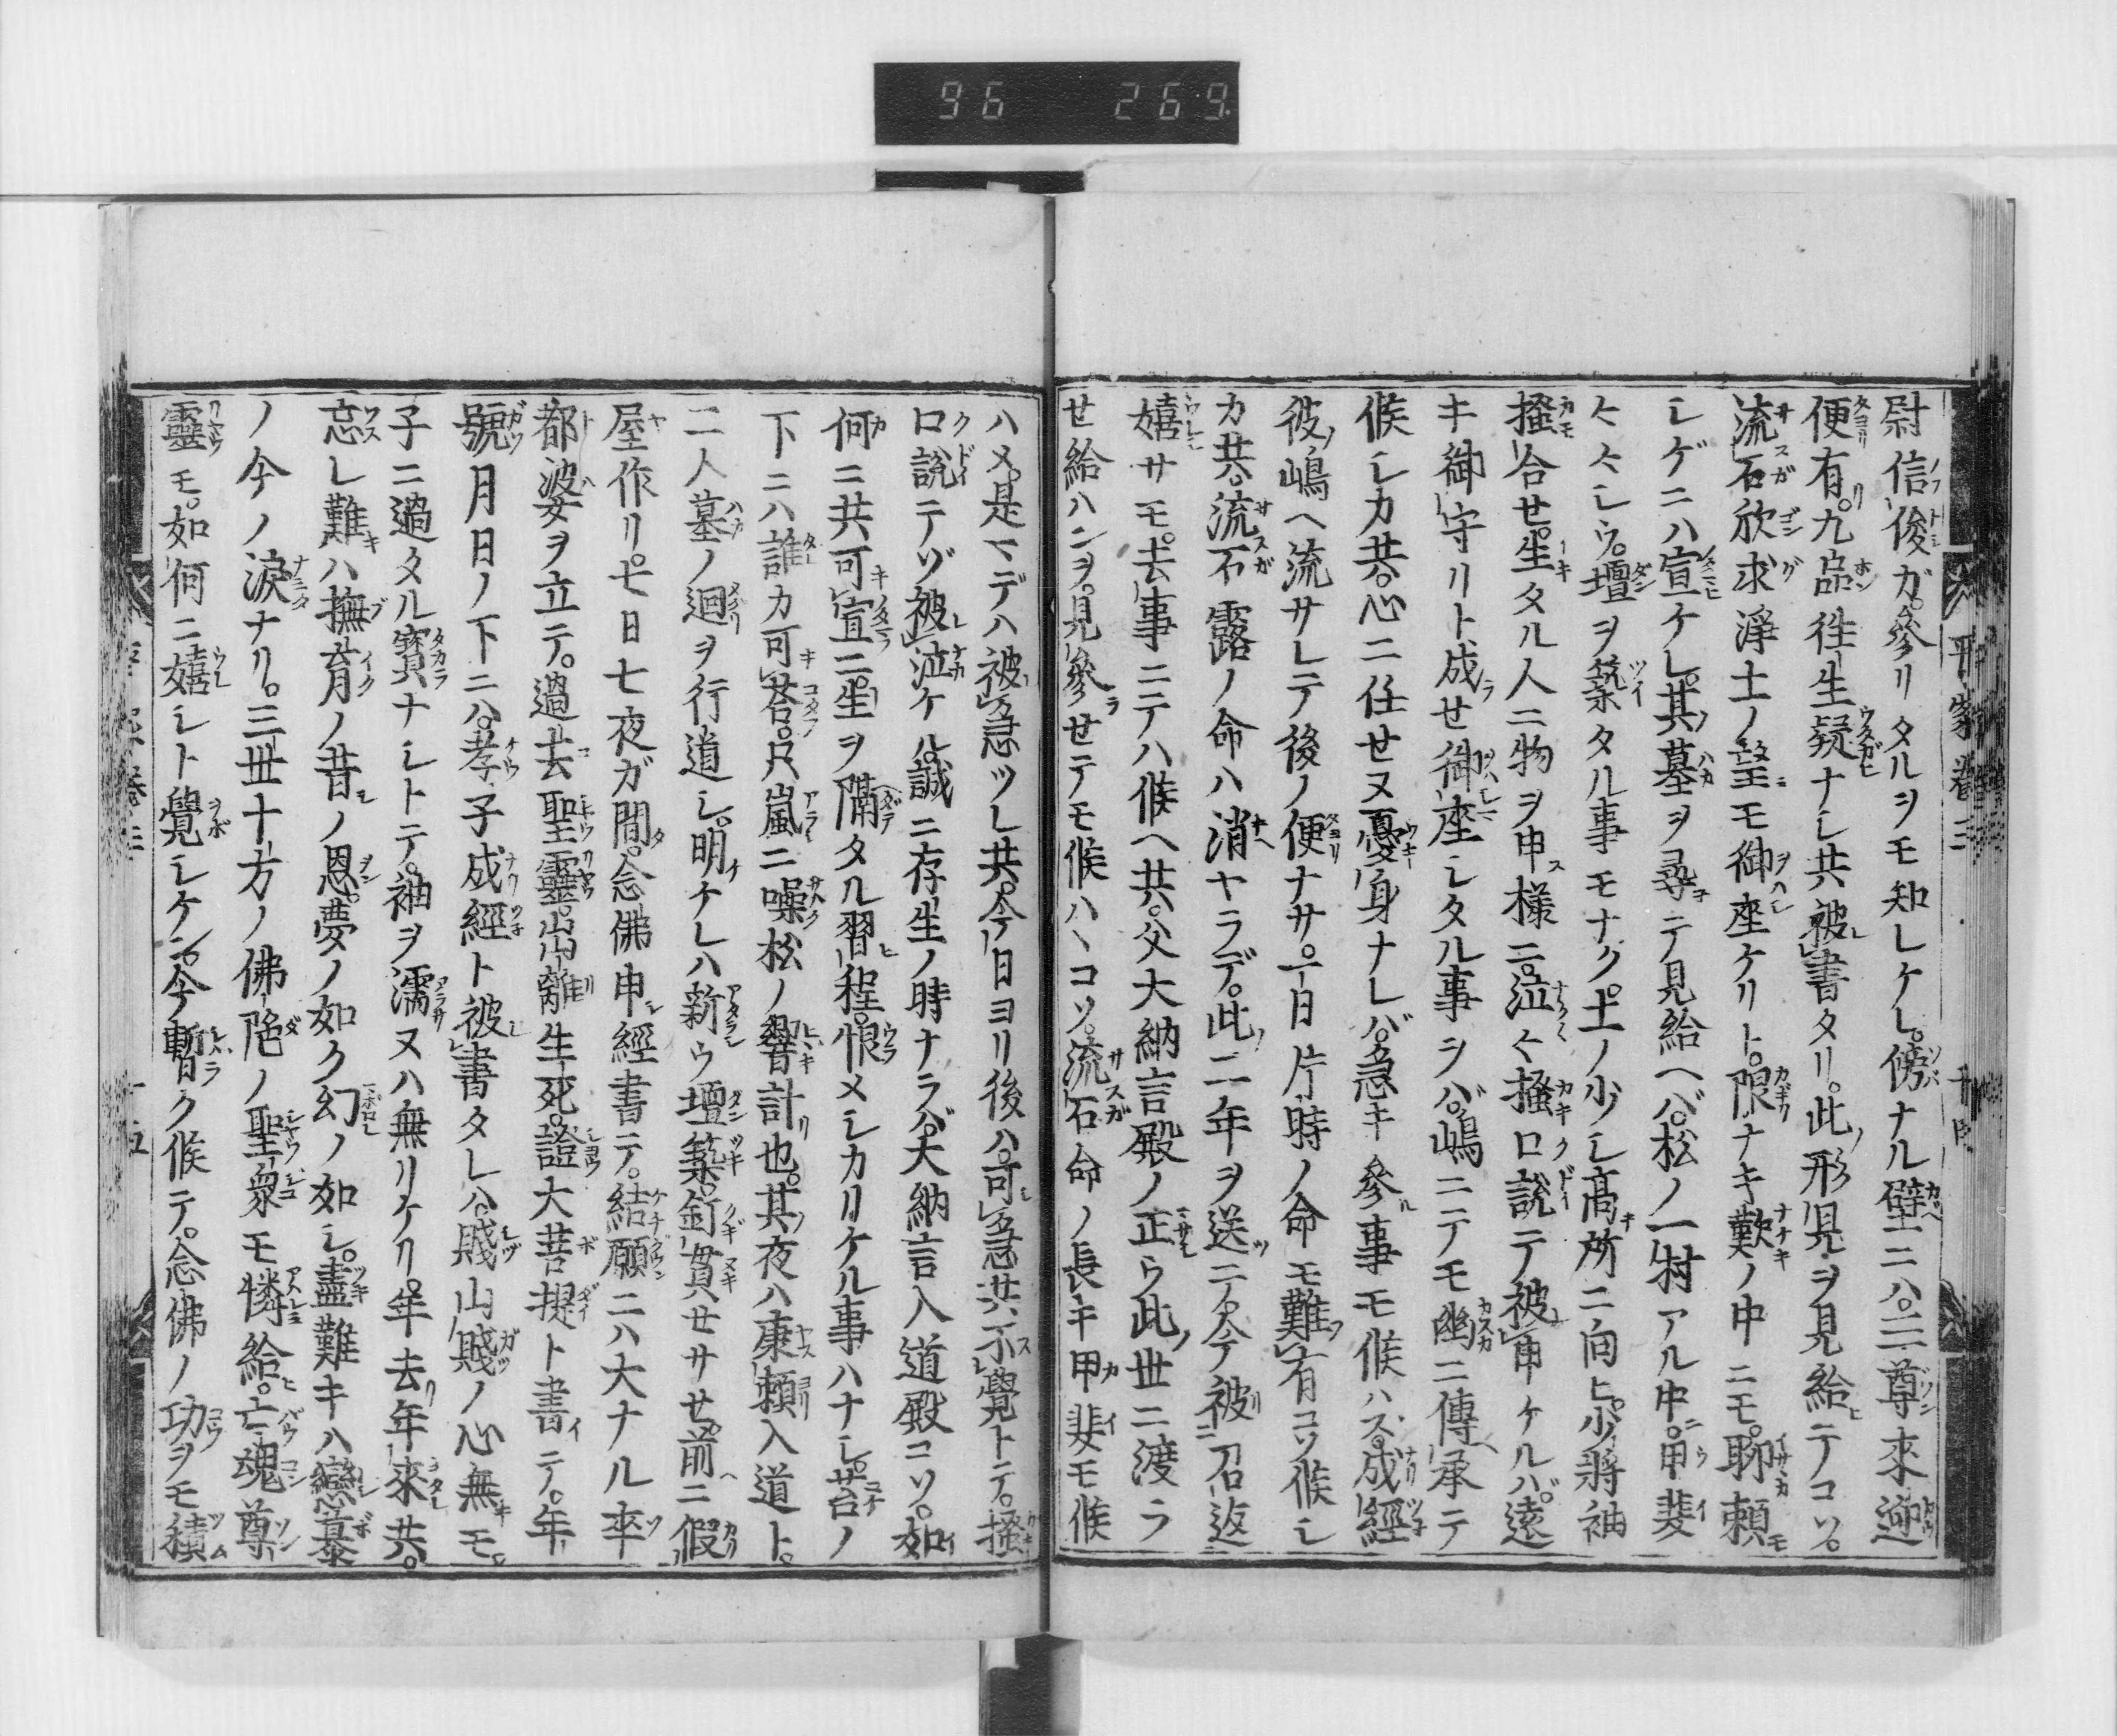 96 269
平家巻三 十四
尉信俊ガ。參リタルヲモ知レケレ。傍ナル壁ニハ。三尊來迎
便有。九品往生疑ナレ共被書タリ。此形見ヲ見給テコソ。
流石欣求淨土ノ望モ御座ケリト。限ナキ歎ノ中ニモ。聊頼
レゲニハ宣ケレ。其墓ヲ尋テ見給ヘバ。松ノ一村アル中。甲斐
々々レウ。壇ヲ築タル事モナク。土ノ少レ高所ニ向ヒ。少將袖
掻合せ。生タル人ニ物ヲ申様ニ。泣々掻口説テ被申ケルハ。遠
キ御守リト成せ御座レタル事ヲバ。嶋ニテモ幽ニ傳承テ
候レカ共。心ニ任せヌ憂身ナレバ。急キ參事モ候ハズ。成經
彼嶋ヘ流サレテ後ノ便ナサ。一日片時ノ命モ難有コソ候レ
カ共。流石露ノ命ハ消ヤラデ。此二年ヲ送テ。今被召返
嬉サモ。去事ニテハ候ヘ共。父大納言殿ノ正ウ此世ニ渡ラ
せ給ハンヲ。見參せテモ候ハヽコソ。流石命ノ長キ甲斐モ候
ハメ。是マデハ被急ツレ共。今日ヨリ後ハ。可急共不覺トテ。掻
口説テゾ被泣ケル。誠ニ存生ノ時ナラバ。大納言入道殿コソ。如
何ニ共可宣ニ。生ヲ隔タル習程。恨メレカリケル事ハナレ。苔ノ
下ニハ誰カ可荅。只嵐ニ噪松ノ響計也。其夜ハ康頼入道ト。
二人墓ノ廻ヲ行道レ。明ケレハ新ウ壇築。釘貫せサせ。前ニ假
屋作リ。七日七夜ガ間。念佛申經書テ。結願ニハ大ナル卒
都婆ヲ立テ。過去聖靈。出離生死。證大菩提ト書テ。年
號月日ノ下ニハ。孝子成經ト被書タレハ。賤山賤ノ心無モ。
子ニ過タル寳ナレトテ。袖ヲ濡ヌハ無リケリ。年去年來共。
忘レ難ハ撫育ノ昔ノ恩。夢ノ如ク幻ノ如レ。盡難キハ戀慕
ノ今ノ淚ナリ。三世十方ノ佛陁ノ聖衆モ憐給。亡魂尊
靈モ。如何ニ嬉レト覺レケン。今暫ク候テ。念佛ノ功ヲモ積